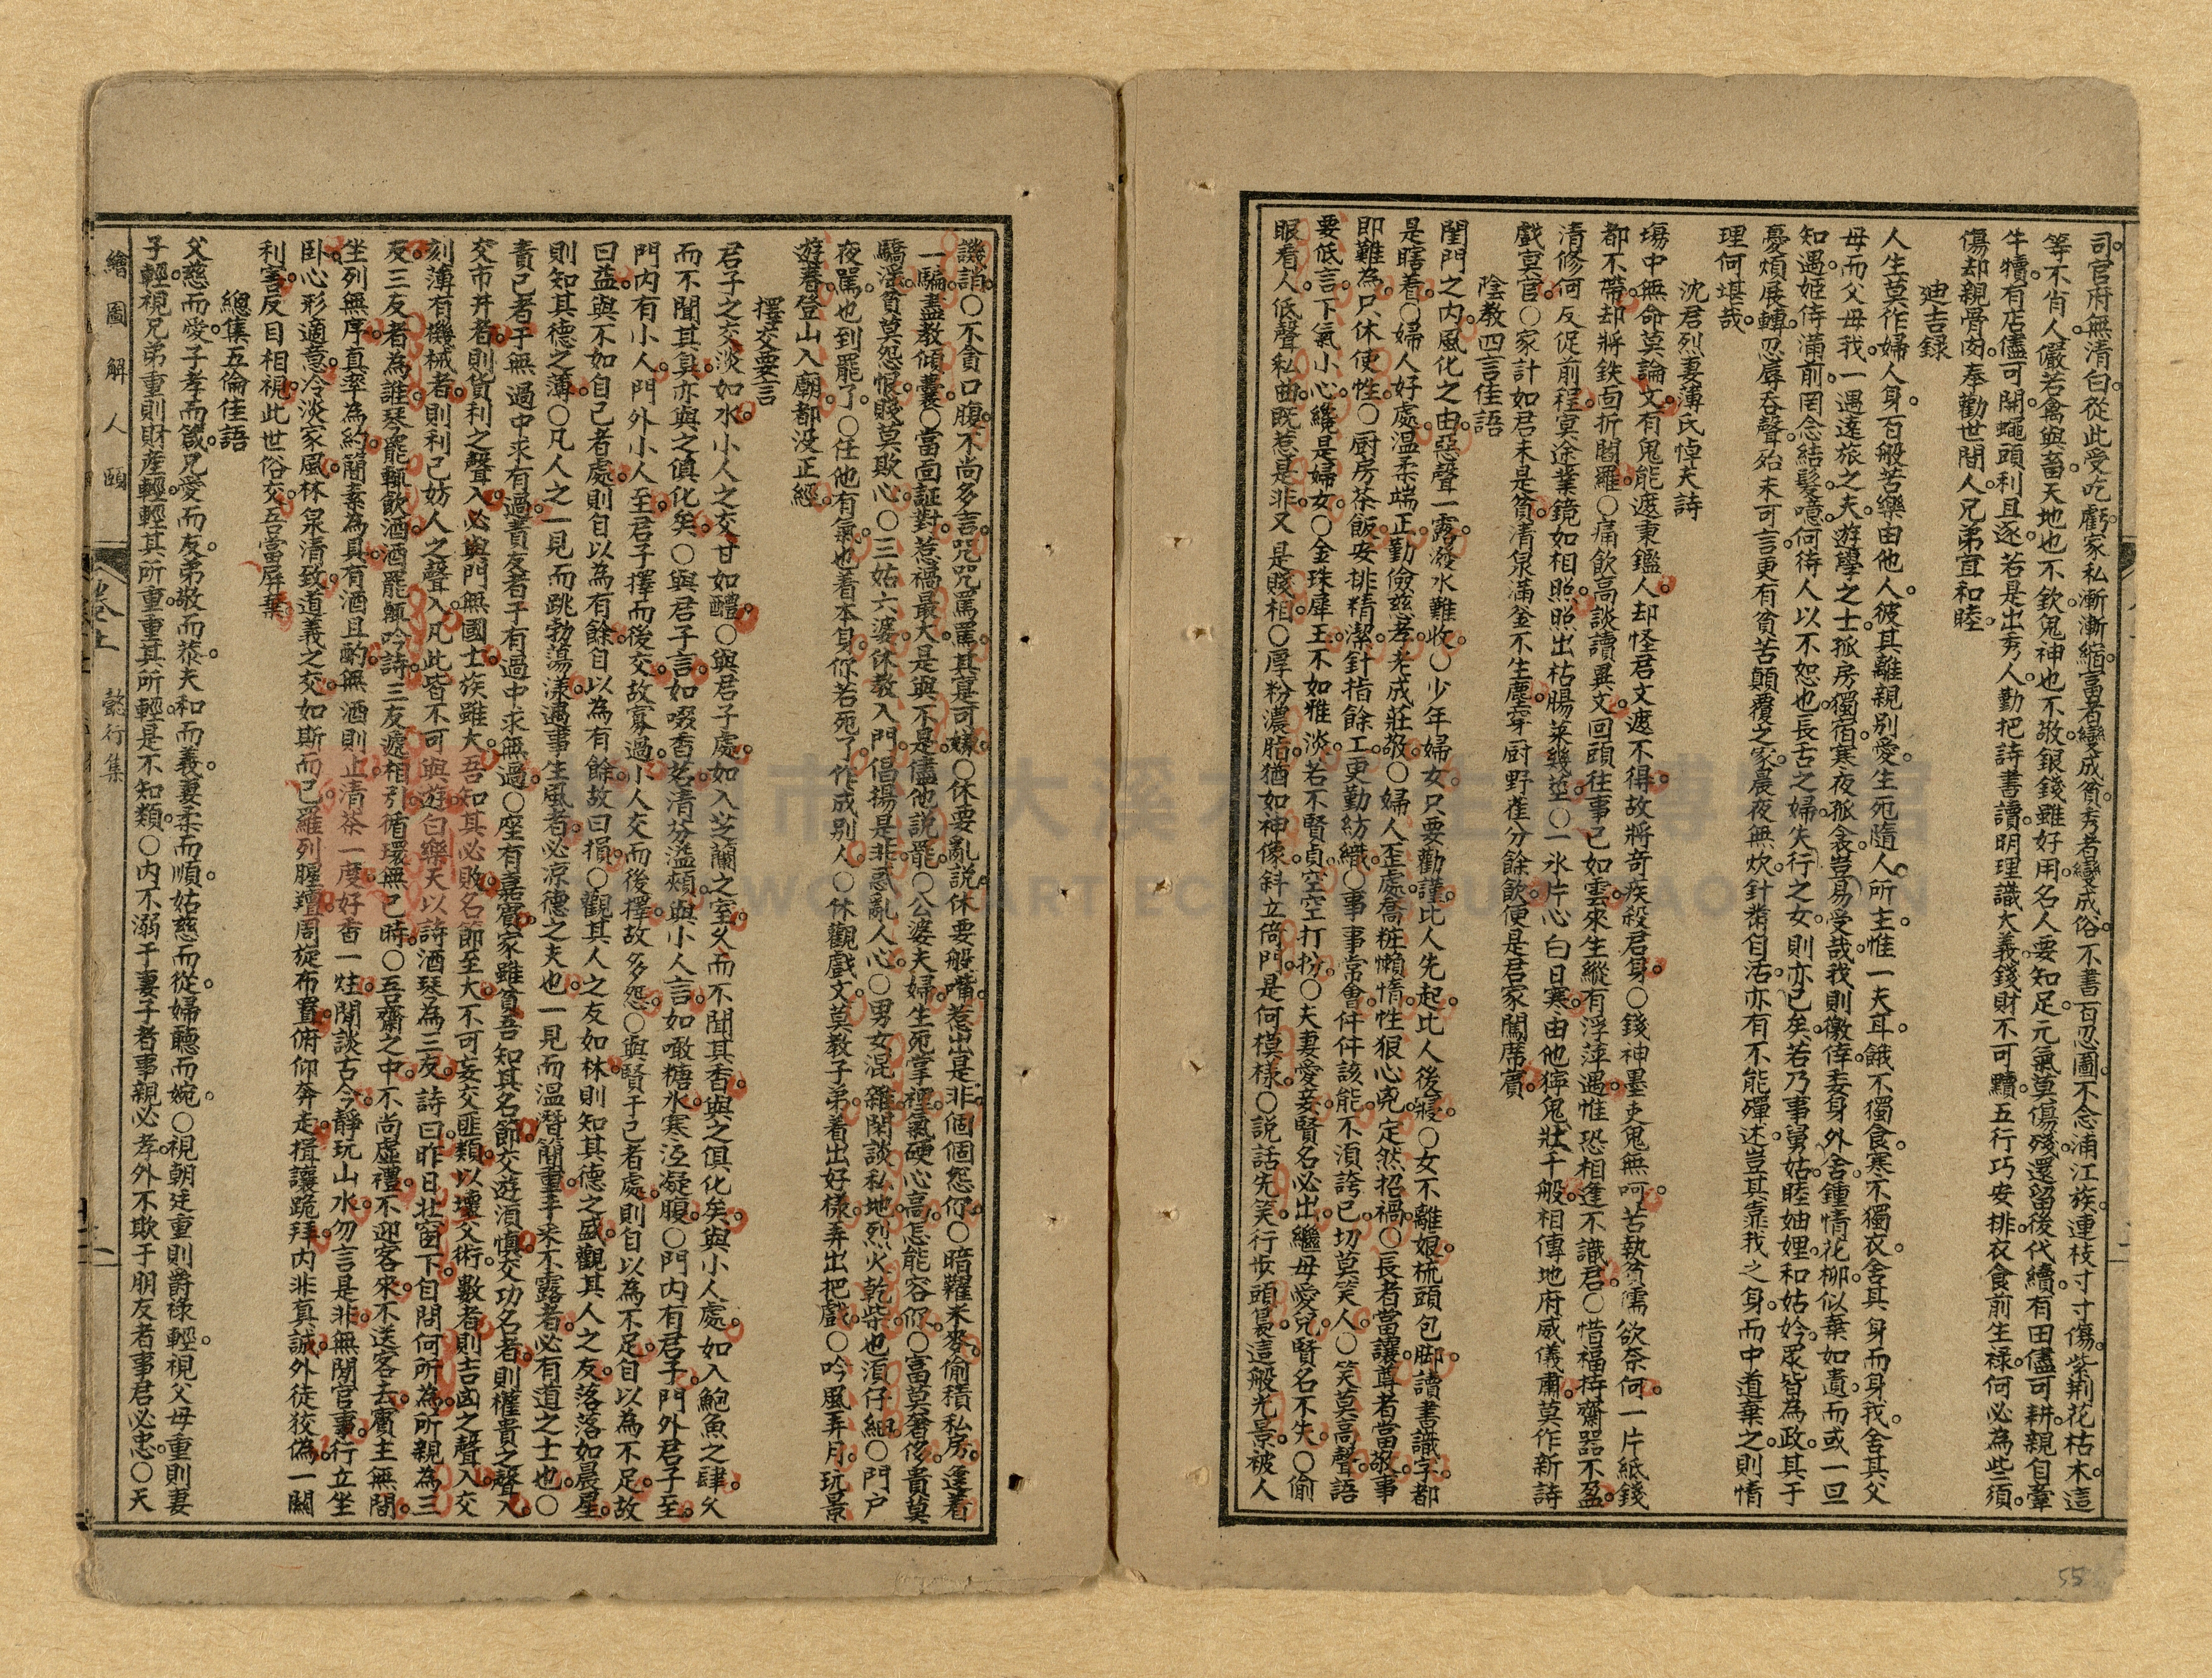 司。官府無清白。從此受吃虧。家私漸漸縮。富者變成貧。秀者變成俗。不書百忍圖。不念浦江族。連枝寸寸傷。紫荊花枯木。這
等不肖人。儼若禽與畜。天地也不欽。鬼神也不敬。銀錢雖好用。名人要知足。元氣莫傷殘。還留後代續。有田儘可耕。親自牽
牛犢。有店儘可開。蠅頭利且逐。若是出秀人。勤把詩書讀。明理識大義。錢財不可黷。五行巧安排。衣食前生祿。何必為些須。
傷却親骨肉。奉勸世間人。兄弟宜和睦。
迪吉録
人生莫作婦人身。百般苦樂由他人。彼其離親別愛。生死隨人。所主惟一夫耳。餓不獨食。寒不獨衣。舍其身而身我。舍其父
母而父母我。一遇遠旅之夫。遊學之士。孤房獨宿。寒夜孤衾。豈易受哉。我則徼倖委身外舍。鍾情花柳。似棄如遺。而或一旦
知遇。姬侍滿前。罔念結髮。噫。何待人以不恕也。長舌之婦。失行之女。則亦已矣。若乃事舅姑。睦妯娌。和姑妗。眾皆為政。其于
憂煩展轉。忍辱吞聲。殆未可言。更有貧苦顛覆之家。晨夜無炊。針黹自活。亦有不能殫述。豈其靠我之身。而中道棄之。則情
理何堪哉。
沈君烈妻薄氏悼夫詩
塲中無命莫論文。有鬼能遮秉鑑人。却怪君文遮不得。故將奇疾殺君身。○錢神墨吏鬼無呵。苦執貧儒欲奈何。一片紙錢
都不帶。却將鉄面折閻羅。○痛飲高談讀異文。回頭往事已如雲。來生縱有浮萍遇。惟恐相逢不識君。○惜福持齋器不盈。
清修何反促前程。冥途業鏡如相照。照出枯腸菜幾莖。○一氷片心白日寒。由他獰鬼壯千般。相傳地府威儀肅。莫作新詩
戲冥官。○家計如君未是貧。清泉滿釜不生塵。穿厨野雀分餘飲。便是君家闊席賓。
陰教四言佳語
閨門之内。風化之由。惡聲一露。潑水難收。○少年婦女。只要勸謹。比人先起。比人後寢。○女不離娘。梳頭包脚。讀書識字。都
是瞎着。○婦人好處。温柔端正。勤儉慈孝。老成莊敬。○婦人歪處。喬粧懶惰。性狠心兇。定然招禍。○長者當讓。尊者當敬。事
即難為。只休使性。○厨房茶飯。安排精潔。針指餘工。更勤紡織。○事事常會。件件該能。不須誇己。切莫笑人。○笑莫高聲。語
要低言。下氣小心。纔是婦女。○金珠犀玉。不如雅淡。若不賢貞。空空打扮。○夫妻愛妾。賢名必出。繼母愛兒。賢名不失。○偷
眼看人。低聲私曲。既惹是非。又是賤相。○厚粉濃脂。猶如神像。斜立倚門。是何模樣。○説話先笑。行步頭㬰。這般光景。被人
譏誚。○不貪口腹。不尚多言。咒咒罵罵。其實可嫌。○休要亂説。休要般嘴。惹出是非。個個怨你。○暗糶米麥。偷積私房。逢着
一騙。盡教傾囊。○當面証對。惹禍最大。是與不是。儘他説罷。○公婆夫婦。生死掌裡。氣硬心高。怎能容你。○富莫奢侈。貴莫
驕淫。貧莫怨恨。賤莫欺心。○三姑六婆。休教入門。倡揚是非。惑亂人心。○男女混雜。閑談私地。烈火乾柴。也須仔細。○門户
夜罵。也到罷了。○任他有氣。也看本身。你若死了。作成別人。○休觀戲文。莫教子弟。看出好樣。弄出把戲。○吟風弄月。玩景
遊春。登山入廟。都没正經。
擇交要言
君子之交淡如水。小人之交甘如醴。○與君子處。如入芝蘭之室。久而不聞其香。與之俱化矣。與小人處。如入鮑魚之肆。久
而不聞其臭。亦與之俱化矣。○與君子言。如啜香茗。清芬溢頰。與小人言。如噉糖氷。寒沍凝腹。○門内有君子。門外君子至。
門内有小人。門外小人至。君子擇而後交。故寡過。小人交而後擇。故多怨。○與賢于己者處。則自以為不足。自以為不足。故
曰益。與不如自己者處。則自以為有餘。自以為有餘。故曰損。○觀其人之友如林。則知其德之盛。觀其人之友。落落如晨星。
則知其德之薄。○凡人之一見而跳勃蕩漾。遇事生風者。必涼德之夫也。一見而温醇簡重。丰采不露者。必有道之士也。○
責己者。于無過中求有過。責友者。于有過中求無過。○座有嘉賓。家雖貧。吾知其名節。交遊須慎。交功名者。則權貴之聲入。
交市井者。則貨利之聲入。必與門無國士。族雖大。吾知其必敗。名節至大。不可妄交匪類。以壞父術。數者。則吉凶之聲入。交
刻薄有機械者。則利己妨人之聲入。凡此皆不可與遊。白樂天以詩酒琴為三友。詩曰。昨日壯窗下。自問何所為。所親為三
友。三友者為誰。琴罷輒飲酒。酒罷輒吟詩。三友遞相引。循環無已時。○吾齋之中。不尚虛禮。不迎客來。不送客去。賓主無間。
坐列無序。真率為約。簡素為具。有酒且酌。無酒則止。清茶一度。好香一炷。閒談古今。靜玩山水。勿言是非。無閒官事。行立坐
卧。心形適意。冷淡家風。林泉清致。道義之交。如斯而已。羅列腥羶。周旋布置。俯仰奔走。揖讓跪拜。内非真誠。外徒狡偽。一關
利害。反目相視。此世俗交。吾當屏棄
總集五倫佳語
父慈而愛。子孝而箴。兄愛而友。弟敬而恭。夫和而義。妻柔而順。姑慈而從。婦聽而婉。○視朝廷重。則爵祿輕。視父母重。則妻
子輕。視兄弟重。則財産輕。輕其所重。重其所輕。是不知類。○内不溺于妻子者。事親必孝。外不欺于朋友者。事君必忠。○天
繪圖解人頤 卷上 懿行集
55